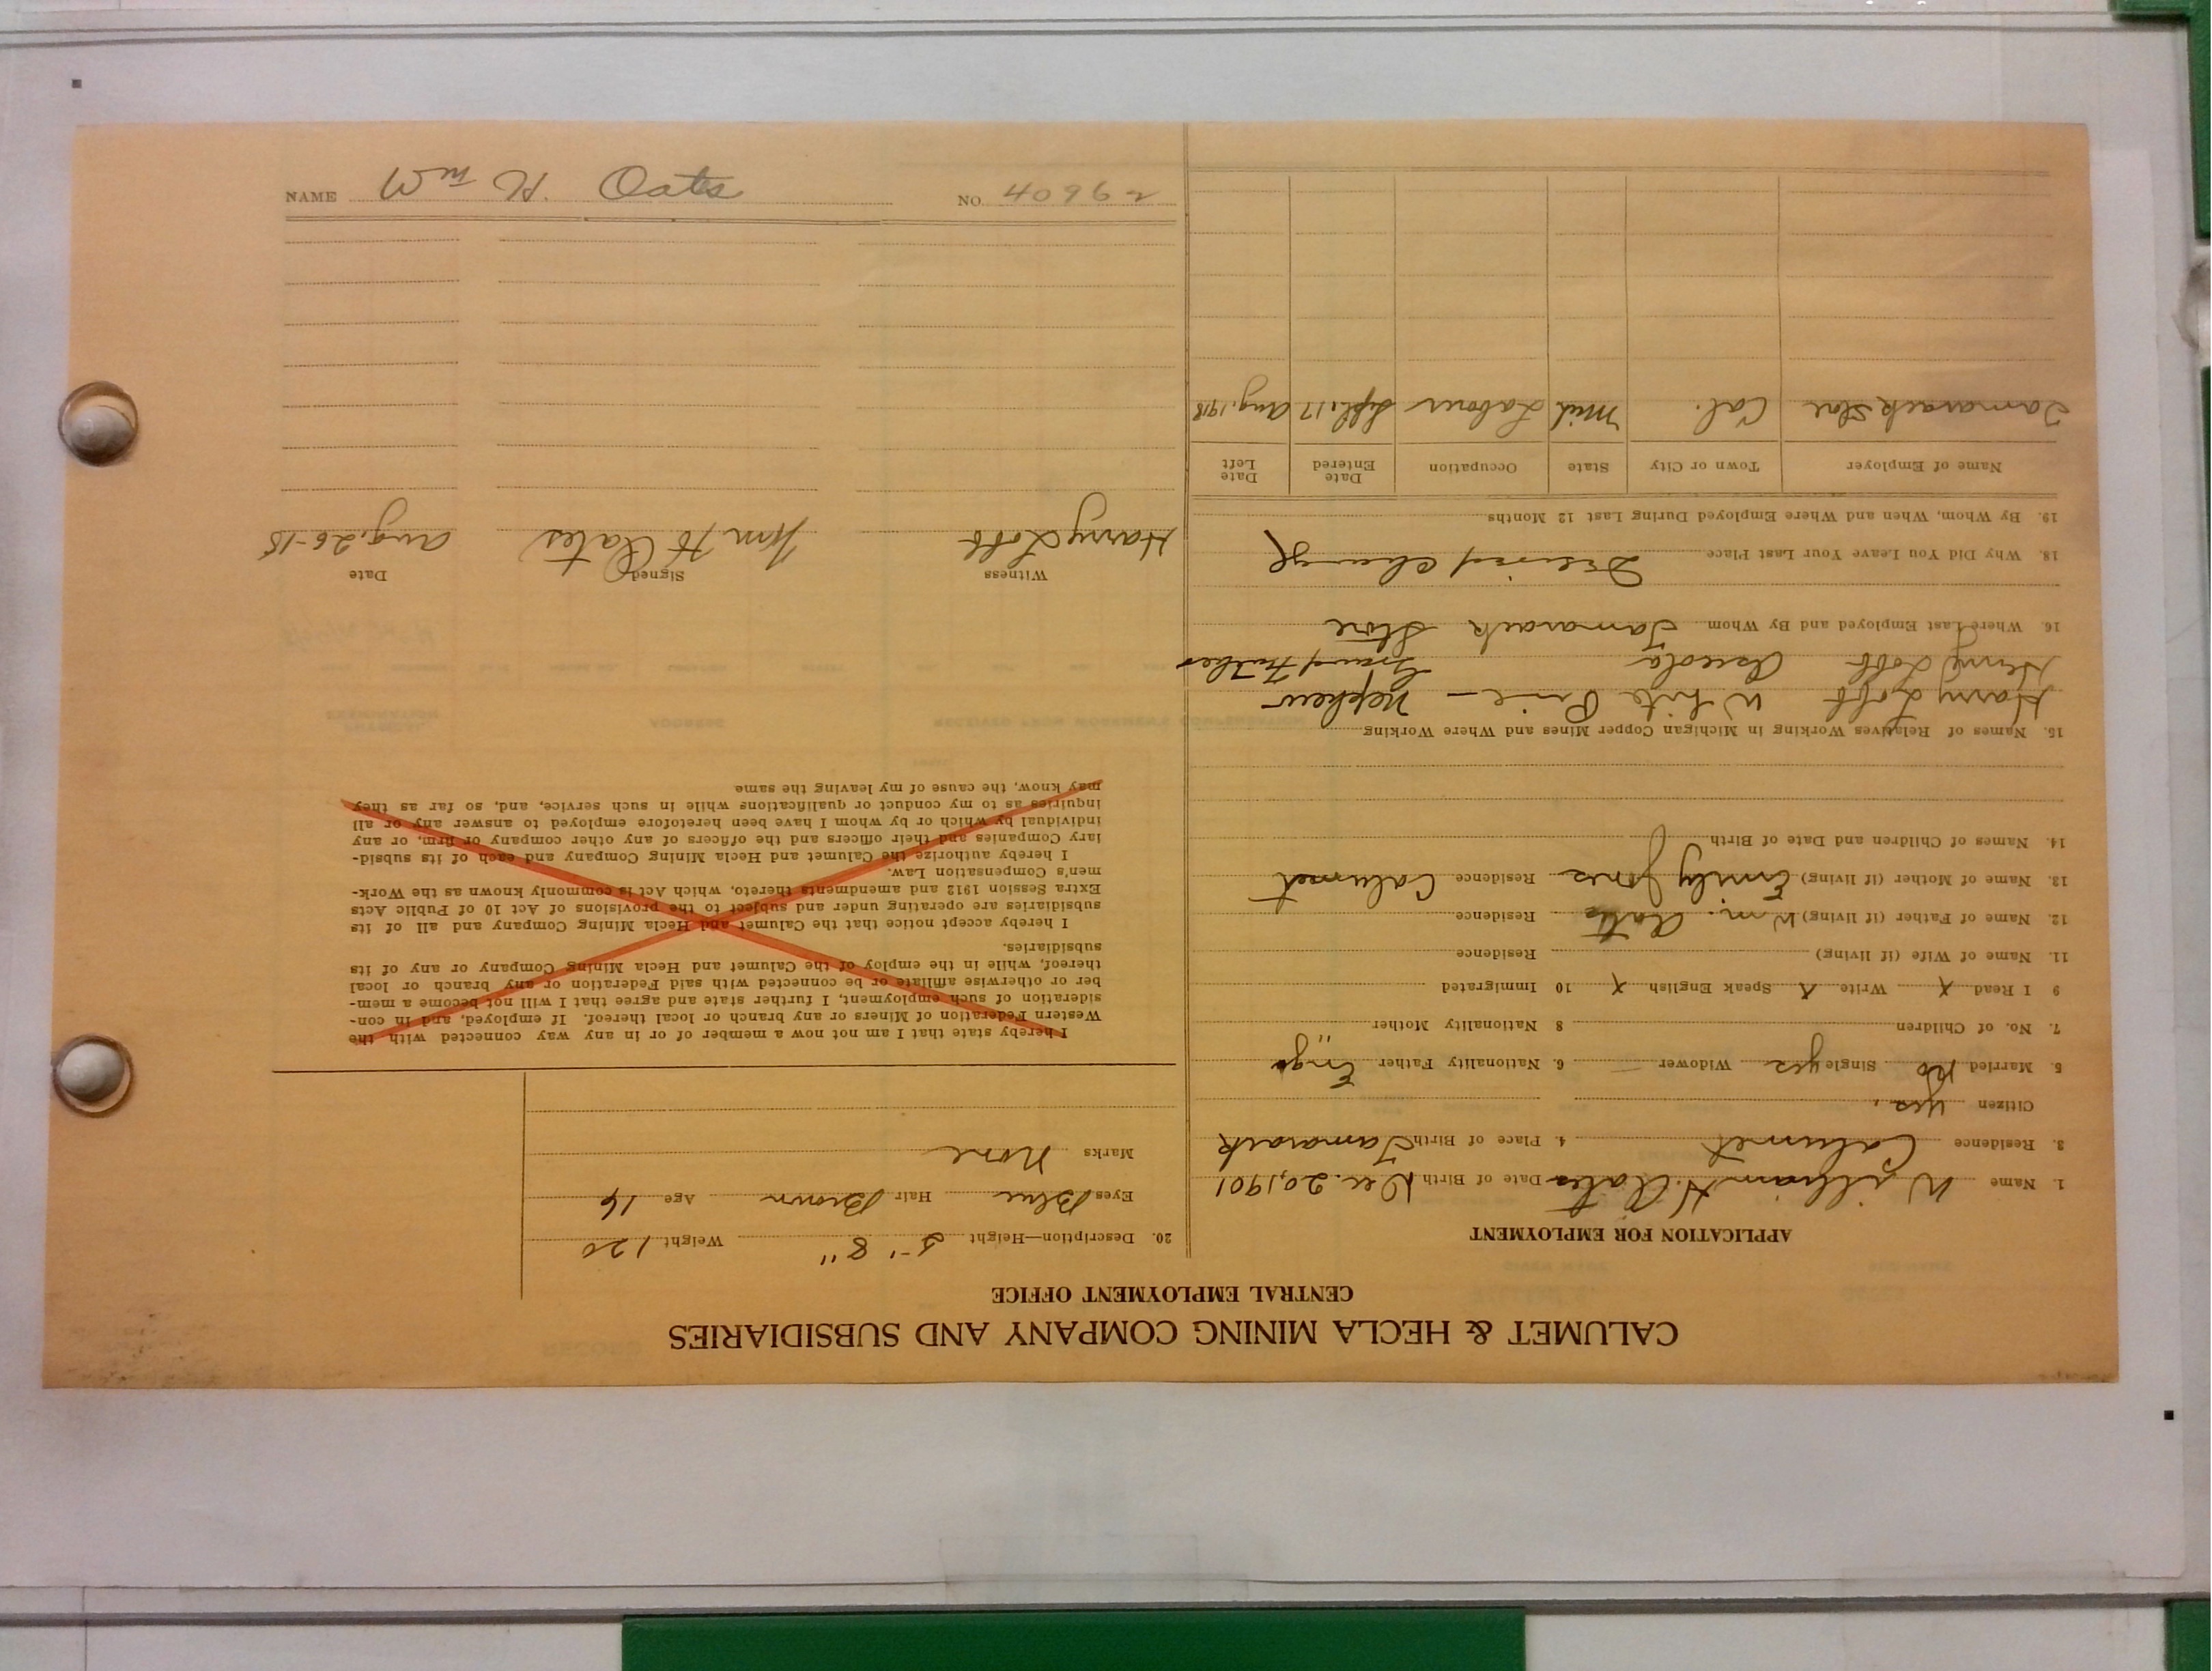 CALUMET & HECLA MINING COMPANY AND SUBSIDIARIES
CENTRAL EMPLOYMENT OFFICE
APPLICATION FOR EMPLOYMENT
1. Name William H. Oates Date of Birth Dec. 20, 1901
3. Residence Calumet 4. Place of Birth Tamarack
Citizen yes.
5. Married No Single yes Widower — 6. Nationality Father Eng.
7. No. of Children 8 Nationality Mother "
9 I Read X Write X Speak English X 10 Immigrated
11. Name of Wife (if living) Residence
12. Name of Father (if living) Wm. Oates Residence
13. Name of Mother (if living) Emily Jones Residence Calumet
14. Names of Children and Date of Birth
15. Names of Relatives Working in Michigan Copper Mines and Where Working
Harry Lobb White Pine - Nephew
Henry Lobb Osceola Grand Father
16. Where Last Employed and By Whom Tamarack Store
18. Why Did You Leave Your Last Place Desired change
19. By Whom, When and Where Employed During Last 12 Months
Name of Employer Town or City State Occupation Date Entered Date Left
Tamarack Stor Cal. Mich Labour Sept. 17 Aug. 1918
20. Description—Height 5' 8" Weight 120
Eyes Blue Hair Brown Age 16
Marks None
I hereby state that I am not now a member of or in any way connected with the
Western Federation of Miners or any branch or local thereof. If employed, and in con-
sideration of such employment, I further state and agree that I will not become a mem-
ber or otherwise affiliate or be connected with said Federation or any branch or local
thereof, while in the employ of the Calumet and Hecla Mining Company or any of its
subsidiaries.
I hereby accept notice that the Calumet and Hecla Mining Company and all of its
subsidiaries are operating under and subject to the provisions of Act 10 of Public Acts
Extra Session 1912 and amendments thereto, which Act is commonly known as the Work-
men's Compensation Law.
I hereby authorize the Calumet and Hecla Mining Company and each of its subsid-
iary Companies and their officers and the officers of any other company or firm, or any
individual by which or by whom I have been heretofore employed to answer any or all
inquiries as to my conduct or qualifications while in such service, and, so far as they
may know, the cause of my leaving the same
Witness Signed Date
Harry Lobb Wm H Oates Aug. 26-18
NAME Wm H. Oates NO. 40962